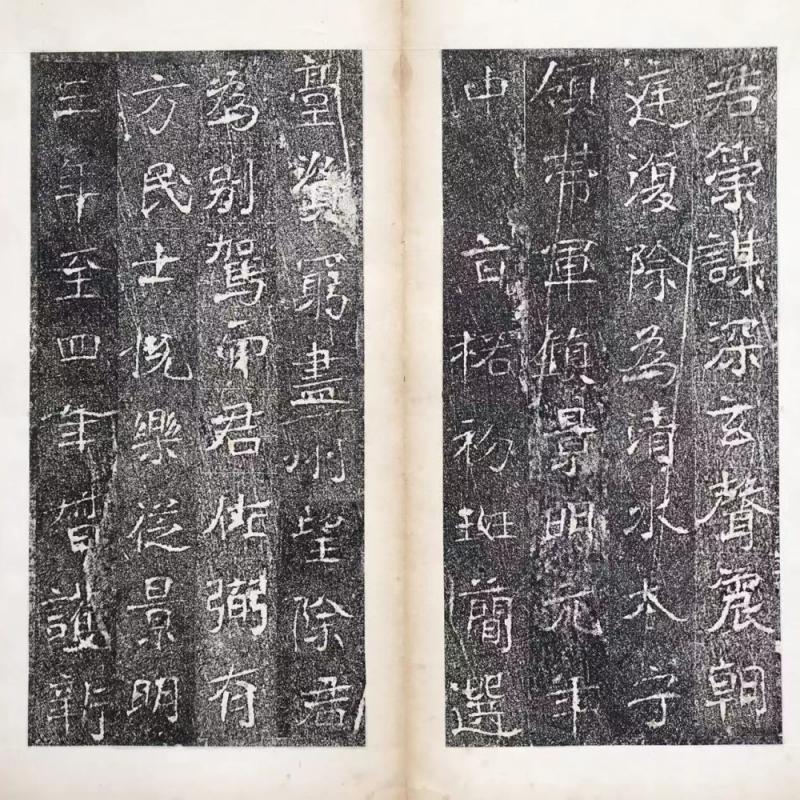 浩策謀深玄聲震朝
廷復除為清水太守
領帶軍鎮景明元年
中台格初班蕳選
臺資窮盡州望除君
為别駕而君佐弼有
方民士慨樂從景明
三年至四年曾護新